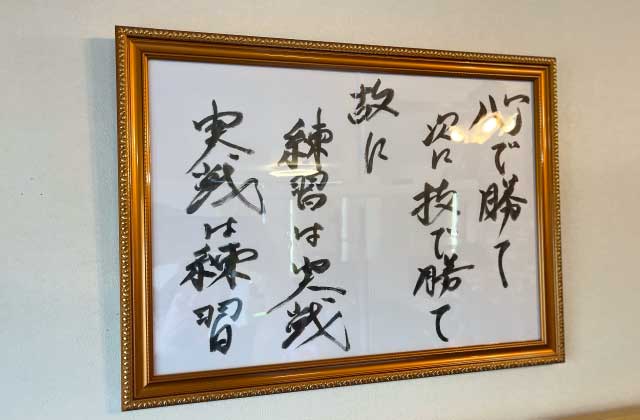 心で勝て
次に技で勝て
故に
練習は実戦
実戦は練習